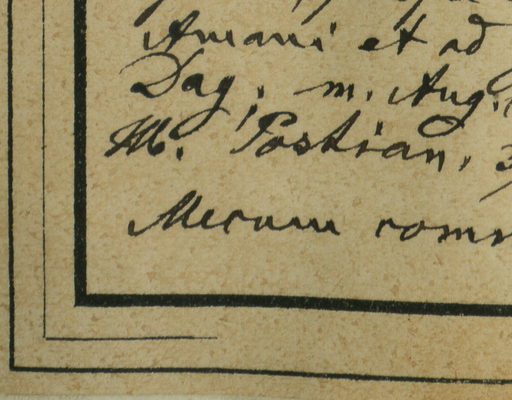 Amani et ad
Dag. m. Aug.
M. Postian.
Mecum com